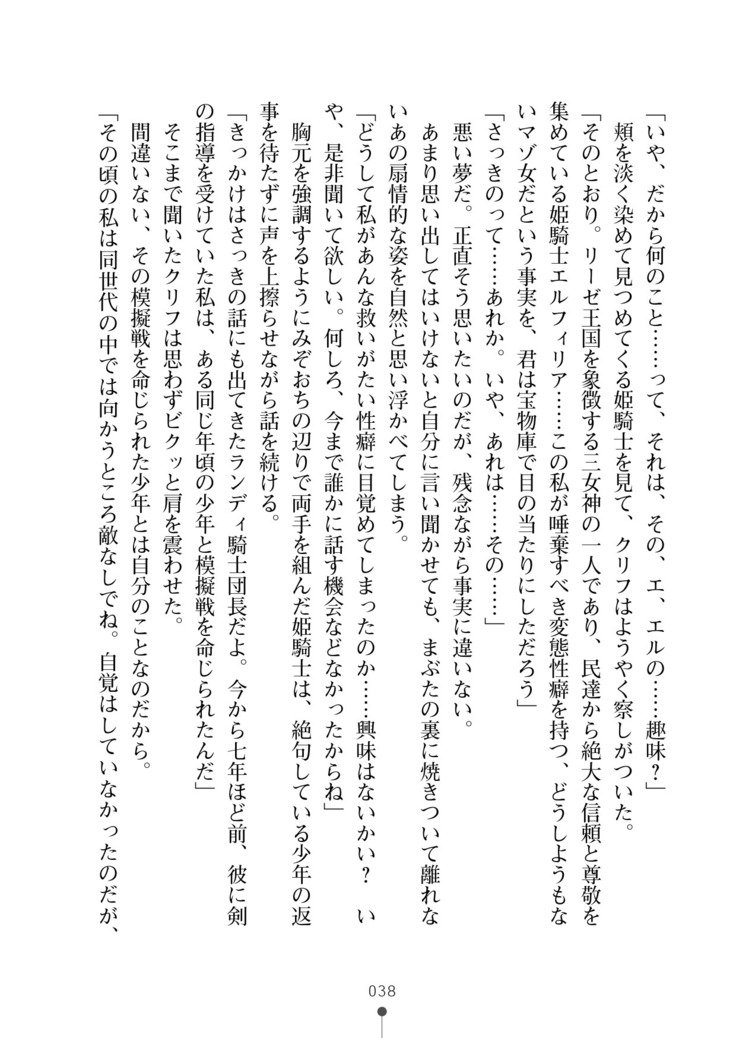 「いや、だから何のこと……って、それは、その、エ、エルの……趣味？」
頬を淡く染めて見つめてくる姫騎士を見て、クリフはようやく察しがついた。
「そのとおり。リーゼ王国を象徴する三女神の一人であり、民達から絶大な信頼と尊敬を
集めている姫騎士エルフィリア……この私が唾棄すべき変態性癖を持つ、どうしようもな
いマゾ女だという事実を、君は宝物庫で目の当たりにしただろう」
「さっきのって……あれか。いや、あれは……その……」
悪い夢だ。正直そう思いたいのだが、残念ながら事実に違いない。
あまり思い出してはいけないと自分に言い聞かせても、まぶたの裏に焼きついて離れな
いあの扇情的な姿を自然と思い浮かべてしまう。
「どうして私があんな救いがたい性癖に目覚めてしまったのか……興味はないかい？　い
や、是非聞いて欲しい。何しろ、今まで誰かに話す機会などなかったからね」
胸元を強調するようにみぞおちの辺りで両手を組んだ姫騎士は、絶句している少年の返
事を待たずに声を上擦らせながら話を続ける。
「きっかけはさっきの話にも出てきたランディ騎士団長だよ。今から七年ほど前、彼に剣
の指導を受けていた私は、ある同じ年頃の少年と模擬戦を命じられたんだ」
そこまで聞いたクリフは思わずビクッと肩を震わせた。
間違いない、その模擬戦を命じられた少年とは自分のことなのだから。
「その頃の私は同世代の中では向かうところ敵なしでね。自覚はしていなかったのだが、
038